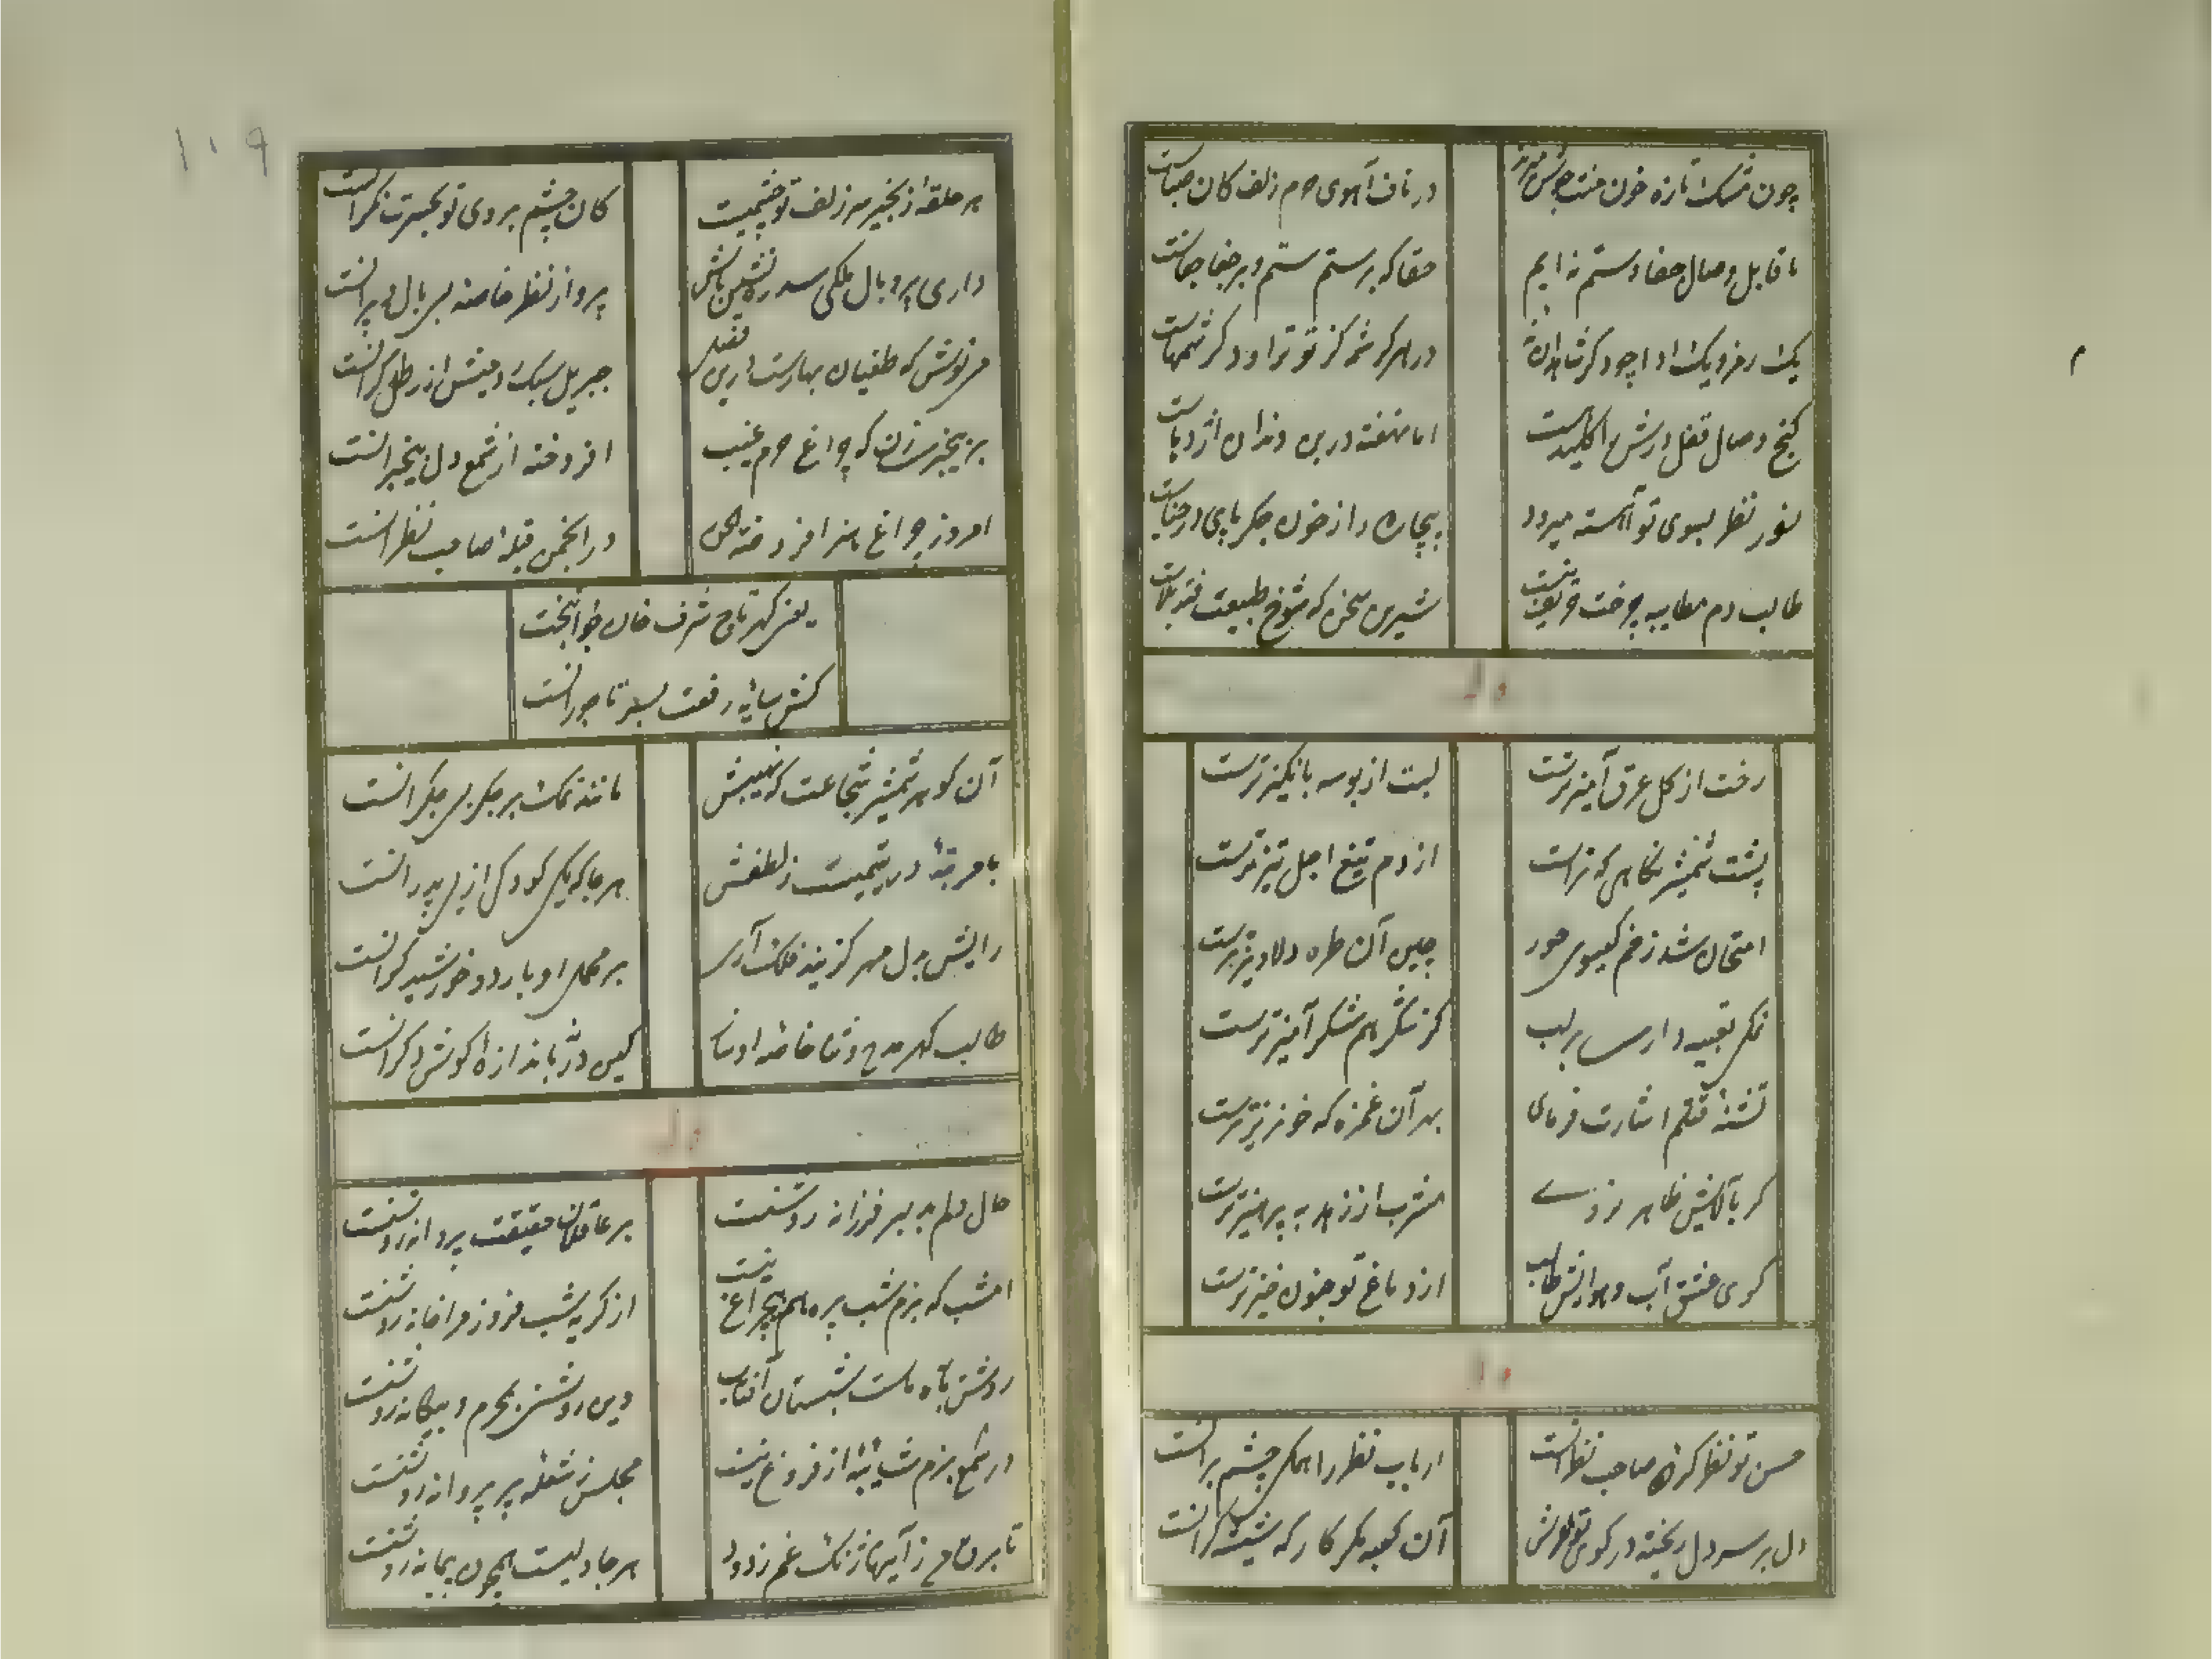 چون مشک تازه خون منت جوش میزند
در ناف آهوی حرم زلف کان صباست
ما قابل وصال جفا و ستم نه ایم
حقا که بر ستم ستم و بر جفا جفاست
یک رمز و یک ادا چو
در هر کرشمه کز تو تراود کرشمهاست
کنج وصال قفل درش را کلید هست
اما نهفته در بن دندان اژدهاست
نور نظر بسوی تو آهسته میرود
بیچاره را ز خون جگر پای در حناست
طالب دم مطایبه
شیرین سخن که شوخ طبیعت
وله
رخت از گل عرق آمیزترست
لبت از بوسه بانگیزترست
پشت شمشیر نگاهی که تراست
از دم تیغ اجل تیزترست
امتحان شد ز خم گیسوی حور
چین آن طره دلاویزترست
نمکی تعبیه داری بر لب
کز شکر هم شکر آمیزترست
تشنهٔ قتلم اشارت فرمای
بهر آن غمزه که خونریزترست
گر بآلایش ظاهر
مشرب از زهد به پرهیزترست
کوی عشق آب و هوایش طالب
از دماغ تو جنون خیزترست
وله
حسن تو نظر کردهٔ صاحب نظرانست
ارباب نظر را همگی چشم برانست
دل بر سر دل ریخته در کوی تو
آن کعبه مگر کارگه شیشه گرانست
۱۰۹
هر حلقهٔ زنجیر سر زلف تو چشمیست
کان چشم بروی تو بحسرت نگرانست
داری پر و بال ملکی سدره نشین باش
پرواز نظر خاصه بی بال و پرانست
می نوش که طغیان بهارست درین فصل
جبریل سبک
بر بیخبرسان زن که چراغ حرم غیب
افروخته از شمع دل بیخبرانست
امروز چراغ هنر افروخته
در انجمن قبلهٔ صاحب نظرانست
یعنی گهر تاج شرف خان جوانبخت
کش پایهٔ رفعت بسر تاجورانست
آن گوهر شمشیر شجاعت که نهیبش
مانند نمک بر جگر بی جگرانست
با مرتبهٔ در یتیمست ز لطفش
هر جا که یکی کودک از بی پدرانست
رایش بدل مهر گزیند فلک آری
بر محمل او بار دو خورشید گرانست
طالب گهر مدح و ثنا خاصه او ساز
کین در نه باندازهٔ گوش دگرانست
وله
حال دلم به پیر فرزانه روشنست
بر عاقلان حقیقت پروانه روشنست
امشب که بزم تیره هم بیچراغ نیست
از گریه شب فروز مرا خانه روشنست
روشن بماه ماست شبستان آفتاب
وین روشنی بمحرم و بیگانه روشنست
در شمع بزم شائبهٔ از فروغ نیست
مجلس ز شعلهٔ پر پروانه روشنست
تا برق می ز آینها زنگ غم زدود
هر جا دلیست همچون پیمانه روشنست